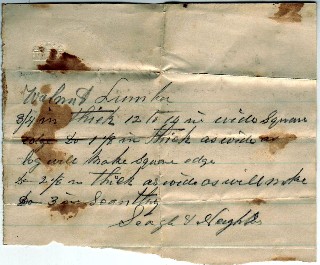 Walnut Lumber
3/4 in thick 12 to 14 in wide Square
edge Do 1 1/8 in thick as wide as
log will make square edge
Do 2 1/2 in thick as wide as will make
Do 3 in Scantling